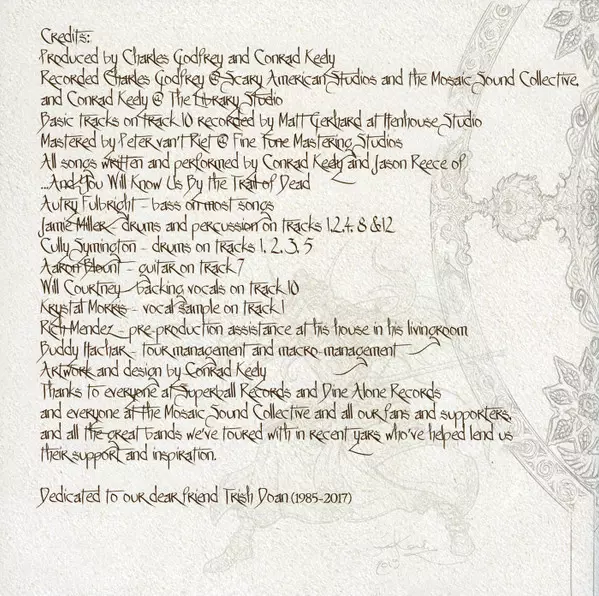 Credits:
Produced by Charles Godfrey and Conrad Keely
Recorded Charles Godfrey @ Scary American Studios and the Mosaic Sound Collective,
and Conrad Keely @ The Library Studio
Basic tracks on track 10 recorded by Matt Gerhard at Henhouse Studio
Mastered by Peter van't Riet @ Fine Tune Mastering Studios
All songs written and performed by Conrad Keely and Jason Reece of
...And You Will Know Us By the Trail of Dead
Autry Fulbright - bass on most songs
Jamie Miller - drums and percussion on tracks 1,2,4, 8 & 12
Cully Symington - drums on tracks 1, 2, 3, 5
Aaron Blount - guitar on track 7
Will Courtney - backing vocals on track 10
Krystal Morris - vocal sample on track 1
Rich Mendez - pre-production assistance at his house in his livingroom
Buddy Hachar - tour management and macro-management
Artwork and design by Conrad Keely
Thanks to everyone at Superball Records and Dine Alone Records
and everyone at the Mosaic Sound Collective and all our fans and supporters,
and all the great bands we've toured with in recent yars who've helped lend us
their support and inspiration.
Dedicated to our dear friend Trish Doan (1985-2017)